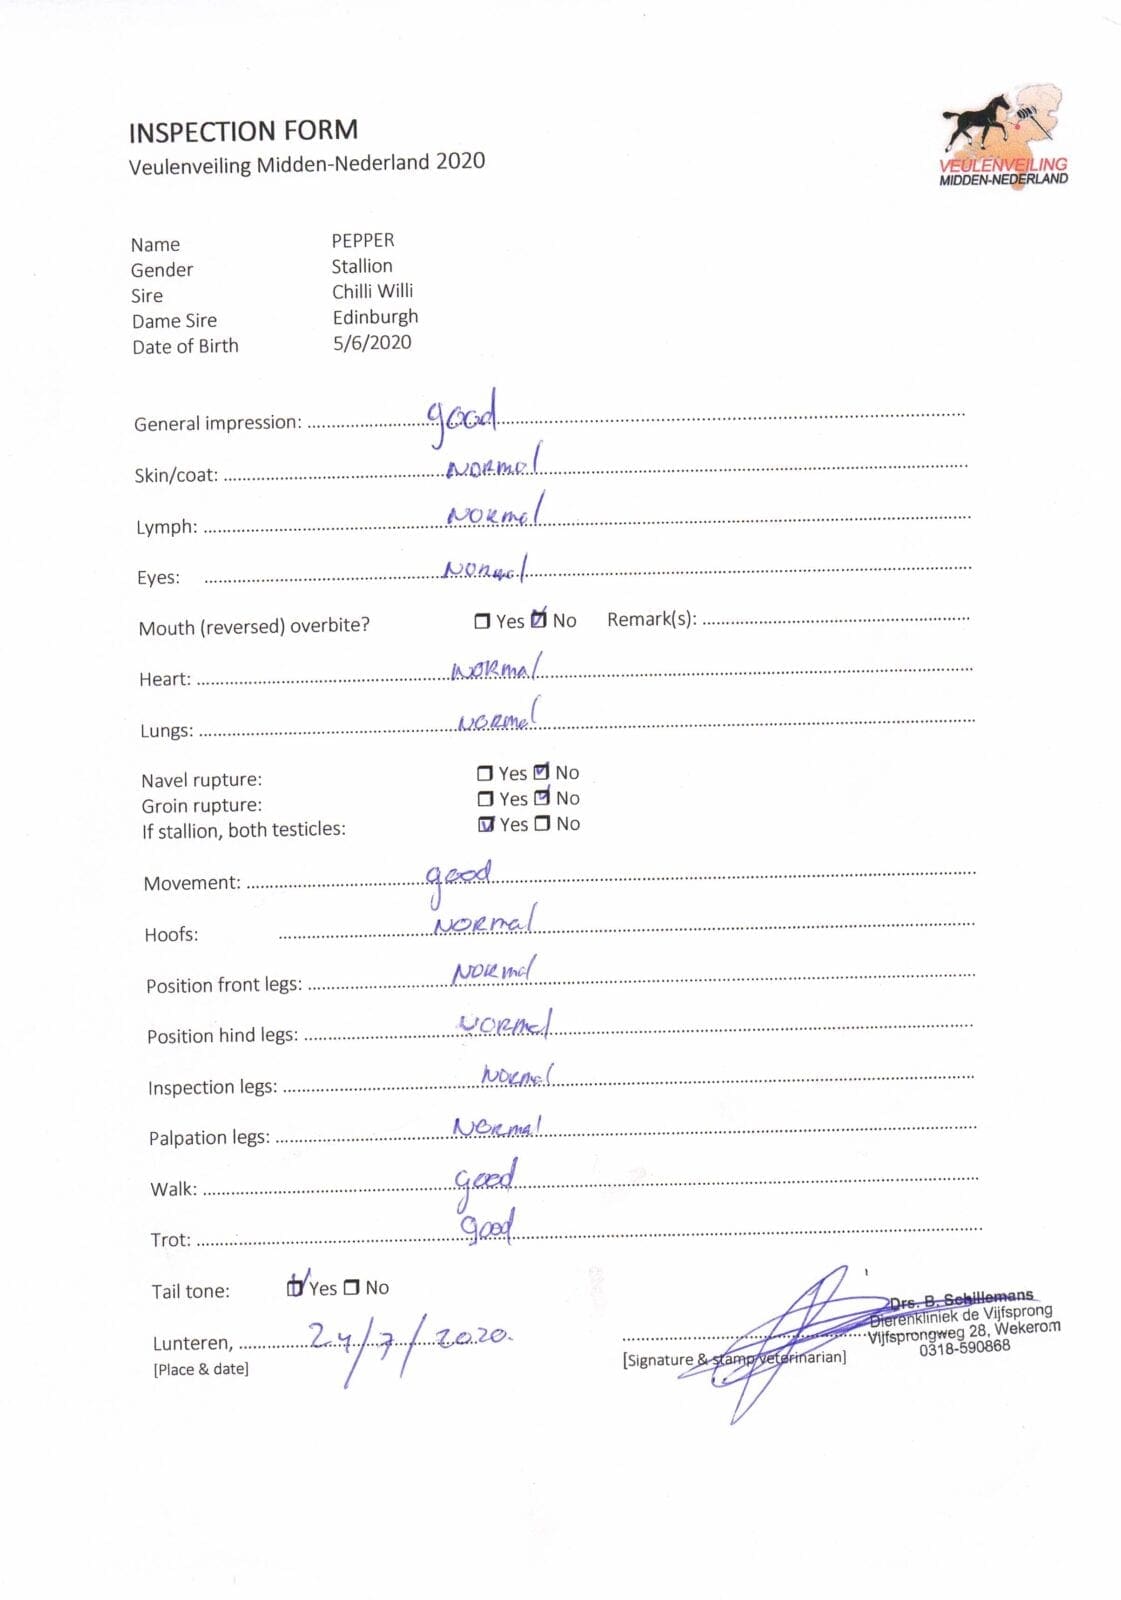 INSPECTION FORM
Veulenveiling Midden-Nederland 2020
VEULENVEILING
MIDDEN-NEDERLAND
Name PEPPER
Gender Stallion
Sire Chilli Willi
Dame Sire Edinburgh
Date of Birth 5/6/2020
General impression: good
Skin/coat: NORMal
Lymph: NORMal
Eyes: NORMal
Mouth (reversed) overbite? ☐ Yes ☑ No Remark(s):
Heart: NORMal
Lungs: NORMal
Navel rupture: ☐ Yes ☑ No
Groin rupture: ☐ Yes ☑ No
If stallion, both testicles: ☑ Yes ☐ No
Movement: good
Hoofs: NORMal
Position front legs: NORMal
Position hind legs: NORMal
Inspection legs: NORMal
Palpation legs: NORMal
Walk: good
Trot: good
Tail tone: ☑ Yes ☐ No
Lunteren, 24/7/2020.
[Place & date]
[Signature & stamp veterinarian]
Drs. B. Schillemans
Dierenkliniek de Vijfsprong
Vijfsprongweg 28, Wekerom
0318-590868